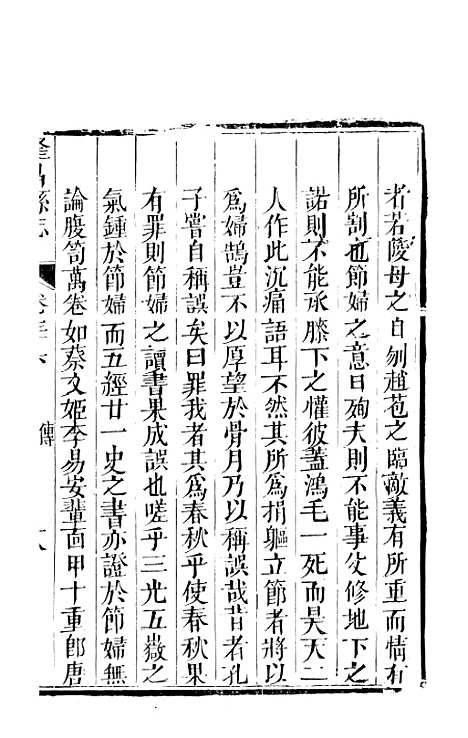 者若陵母之自刎趙苞之臨敵義有所重而情有
所割也節婦之意曰殉夫則不能事父修地下之
諾則不能承膝下之懽彼蓋鴻毛一死而昊天二
人作此沉痛語耳不然其所爲捐軀立節者將以
爲婦鵠豈不以厚望於骨月乃以稱誤哉昔者孔
子嘗自稱誤矣曰罪我者其爲春秋乎使春秋果
有罪則節婦之讀書果成誤也嗟乎三光五嶽之
氣鍾於節婦而五經廿一史之書亦證於節婦無
論腹笥萬卷如蔡文姬李易安輩靣甲十重郎唐
隆昌縣志
卷三十
傳